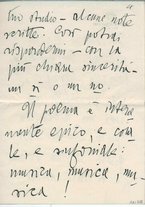 tuo studio - alcune note
scritte. Così potrai
rispondermi - con la
più chiara sincerità -
un sì o un no.
Il poema è
mente epico, e co-
me tale, è sinfoniale:
musica, musica, mu-
sica!